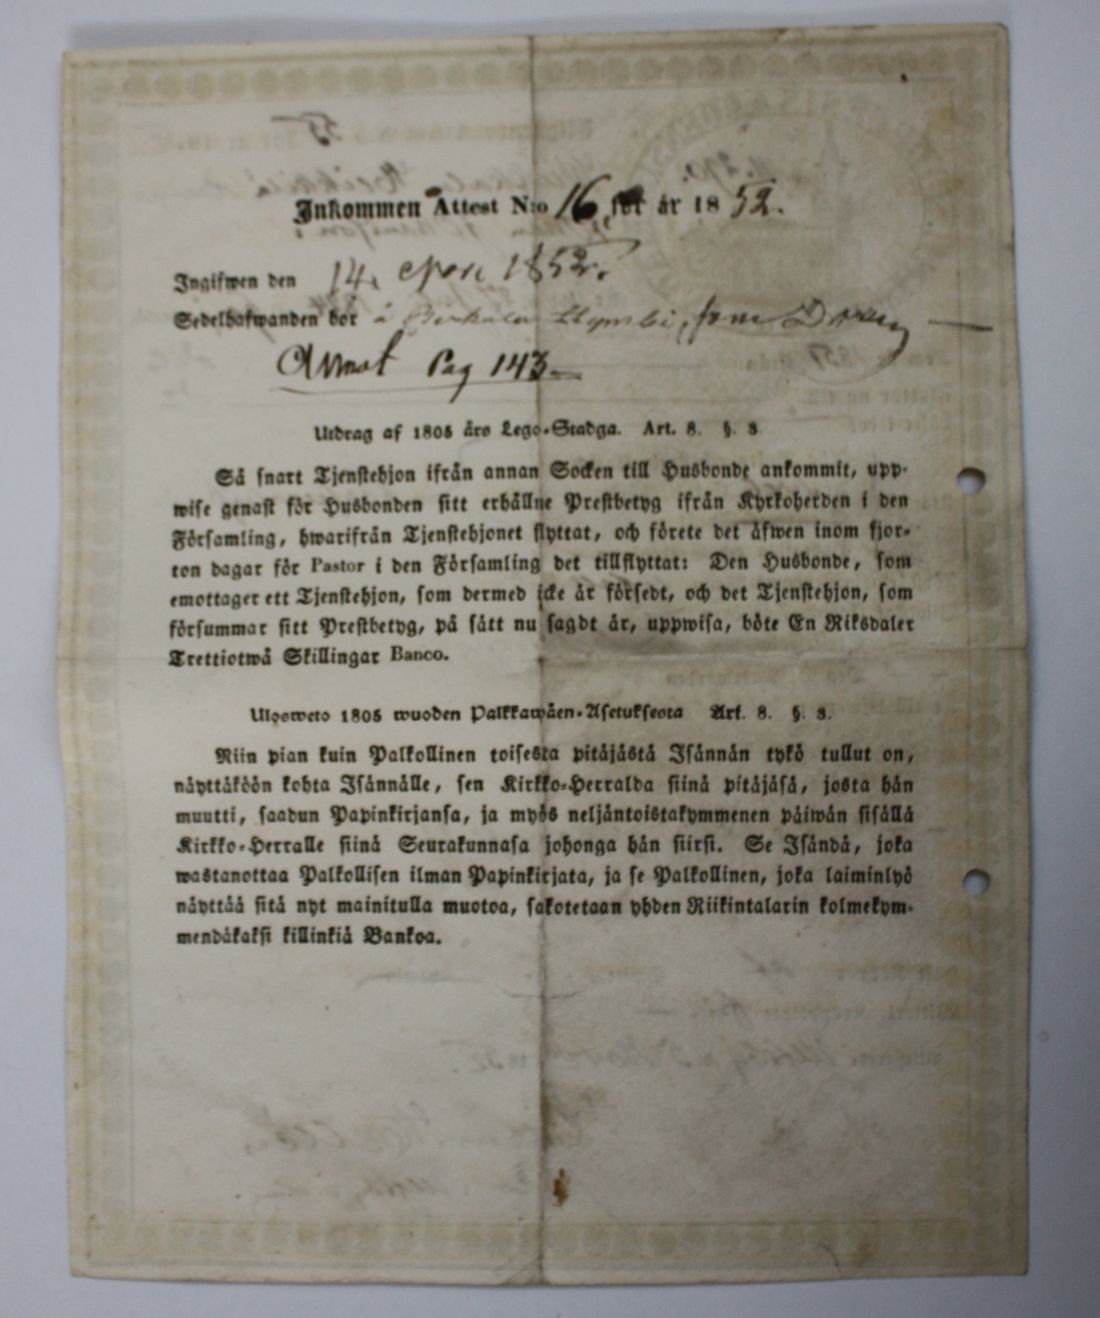 Inkommen Attest N:o 16 för år 1852.
Ingifwen den 14. 1852.
Sedelhafwanden bor å som Dräng
Annot Pag 143
Utdrag af 1805 års Lego-Stadga. Art. 8. §. 3
Så snart Tjenstehjon ifrån annan Socken till Husbonde ankommit, upp-
wise genast för Husbonden sitt erhållne Prestbetyg ifrån Kyrkoherden i den
Församling, hwarifrån Tjenstehjonet flyttat, och förete det äfwen inom fjor-
ton dagar för Pastor i den Församling det tillflyttat: Den Husbonde, som
emottager ett Tjenstehjon, som dermed icke är försedt, och det Tjenstehjon, som
försummar sitt Prestbetyg, på sätt nu sagdt är, uppwisa, böte En Riksdaler
Trettiotwå Skillingar Banco.
Ulgosweto 1805 wuoden Palkkawäen-Asetuksesta Art. 8. §. 3.
Niin pian kuin Palkollinen toisesta pitäjästä Isännän tykö tullut on,
näyttäköön kohta Isännälle, sen Kirkko-Herralda siinä pitäjäsä, josta hän
muutti, saadun Papinkirjansa, ja myös neljäntoistakymmenen päiwän sisällä
Kirkko-Herralle siinä Seurakunnasa johonga hän siirsi. Se Isändä, joka
wastanottaa Palkollisen ilman Papinkirjata, ja se Palkollinen, joka laiminlyö
näyttää sitä nyt mainitulla muotoa, sakotetaan yhden Riikintalarin kolmekym-
mendäkaksi killinkiä Bankoa.